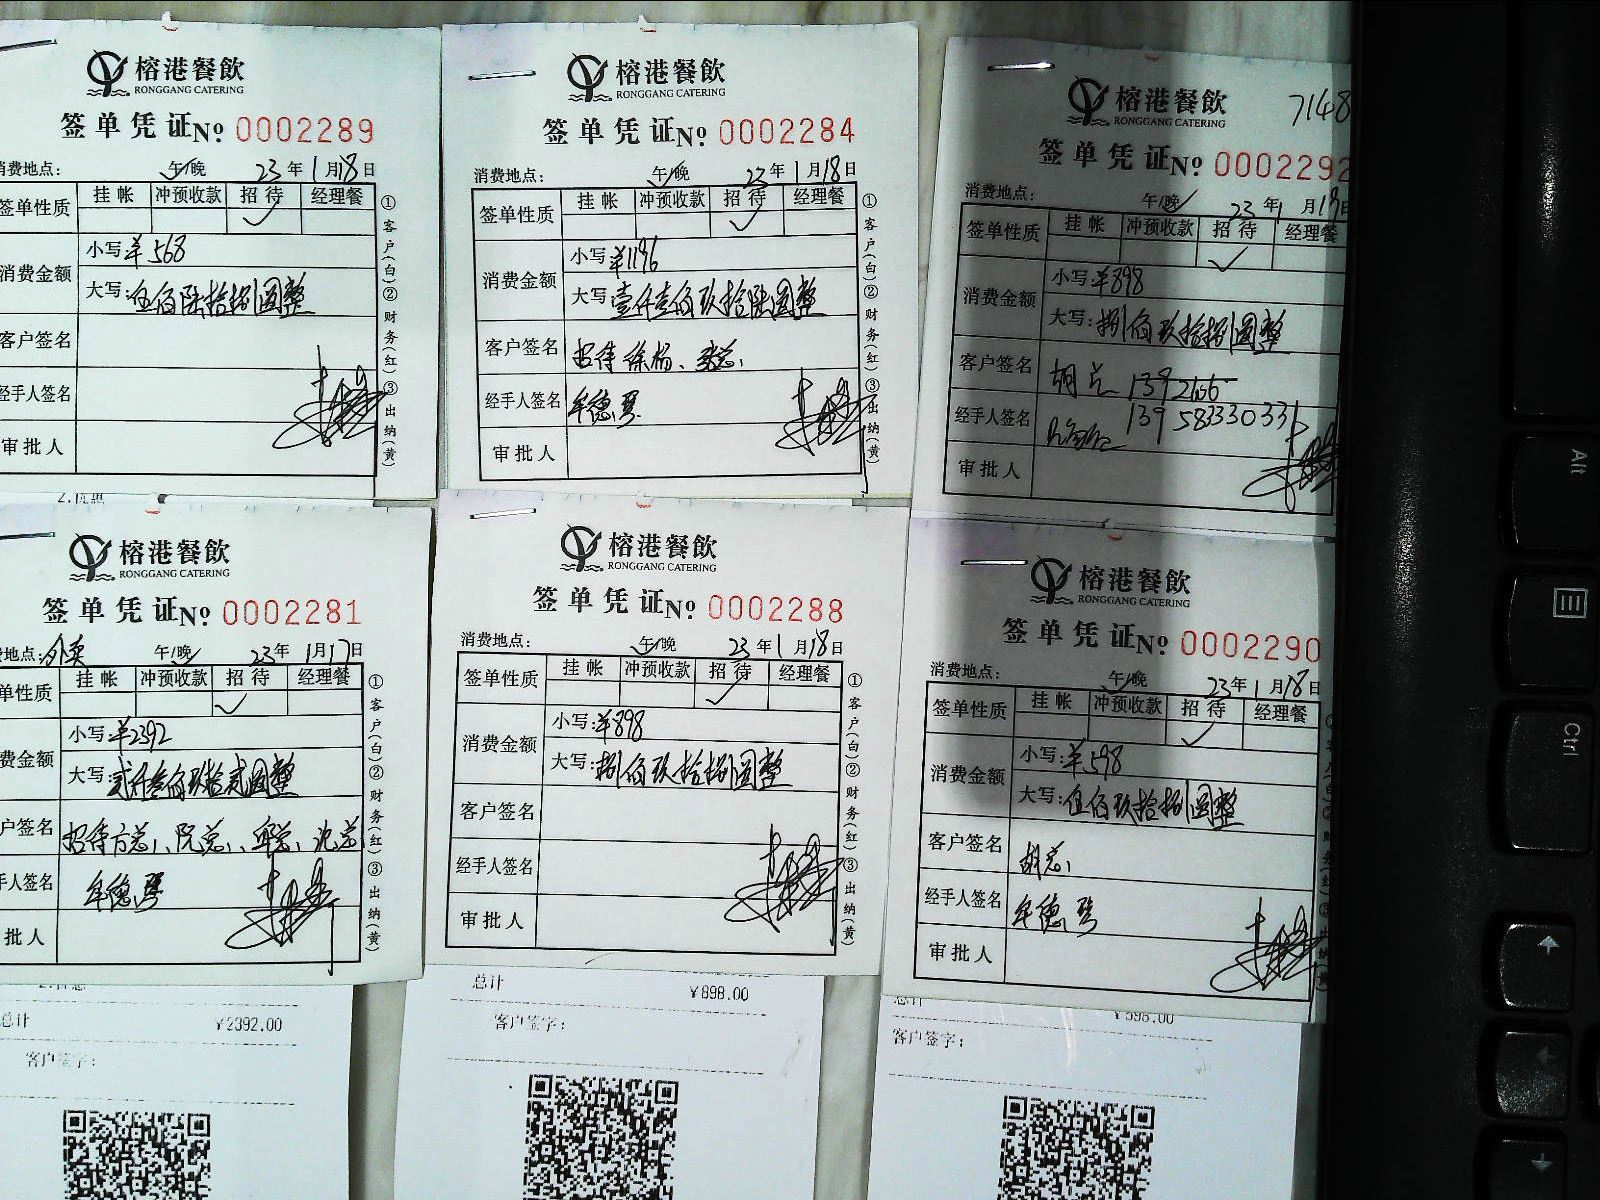 榕港餐飲
RONGGANG CATERING
签单凭证No 0002289
消费地点: 午/晚 23年1月18日
签单性质 挂帐 冲预收款 招待 经理餐
消费金额 小写:¥568
大写:伍佰陆拾捌圆整
客户签名
经手人签名
审批人
①客户(白)②财务(红)③出纳(黄)
榕港餐飲
RONGGANG CATERING
签单凭证No 0002284
消费地点: 午/晚 23年1月18日
签单性质 挂帐 冲预收款 招待 经理餐
消费金额 小写:¥1196
大写:壹仟壹佰玖拾陆圆整
客户签名 招待徐杨、
经手人签名 牟德琴
审批人
①客户(白)②财务(红)③出纳(黄)
7148
榕港餐飲
RONGGANG CATERING
签单凭证No 0002292
消费地点: 午/晚 23年1月17日
签单性质 挂帐 冲预收款 招待 经理餐
消费金额 小写:¥898
大写:捌佰玖拾捌圆整
客户签名 胡总
经手人签名 13958333033
审批人
2.优惠
榕港餐飲
RONGGANG CATERING
签单凭证No 0002281
地点:外卖 午/晚 23年1月17日
单性质 挂帐 冲预收款 招待 经理餐
费金额 小写:¥2392
大写:贰仟叁佰玖拾贰圆整
户签名 招待方总、阮总、牟总、沈总
手人签名 牟德琴
批人
①客户(白)②财务(红)③出纳(黄)
总计 ¥2392.00
客户签字:
榕港餐飲
RONGGANG CATERING
签单凭证No 0002288
消费地点: 午/晚 23年1月18日
签单性质 挂帐 冲预收款 招待 经理餐
消费金额 小写:¥898
大写:捌佰玖拾捌圆整
客户签名
经手人签名
审批人
①客户(白)②财务(红)③出纳(黄)
总计 ¥898.00
客户签字:
榕港餐飲
RONGGANG CATERING
签单凭证No 0002290
消费地点: 午/晚 23年1月18日
签单性质 挂帐 冲预收款 招待 经理餐
消费金额 小写:¥598
大写:伍佰玖拾捌圆整
客户签名 胡总
经手人签名 牟德琴
审批人
总计 ¥598.00
客户签字:
Alt
Ctrl